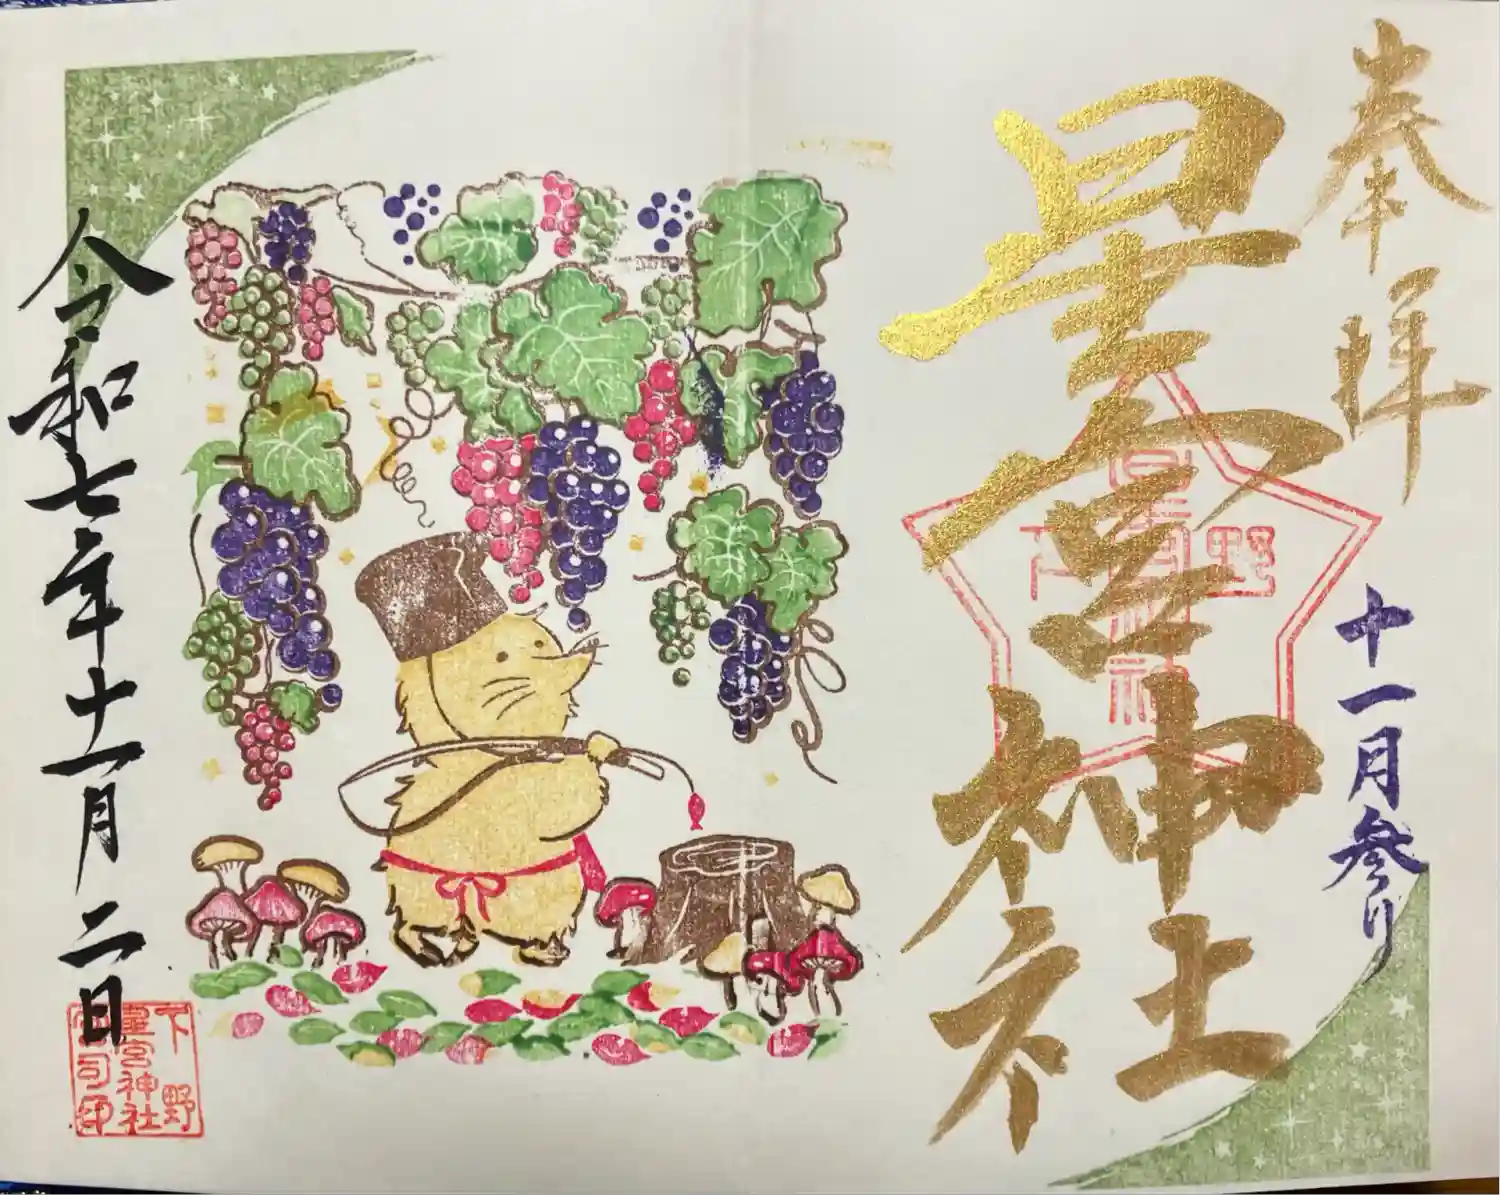 奉拝
十一月参り
星宮神社
下野
星宮神社
令和七年十一月二日
下野
星宮神社
宮司印